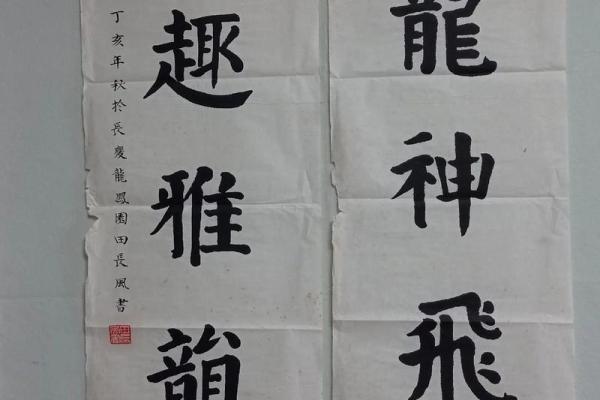 龍神飛
趣雅韻
丁亥年秋於長慶龍鳳園田長風書